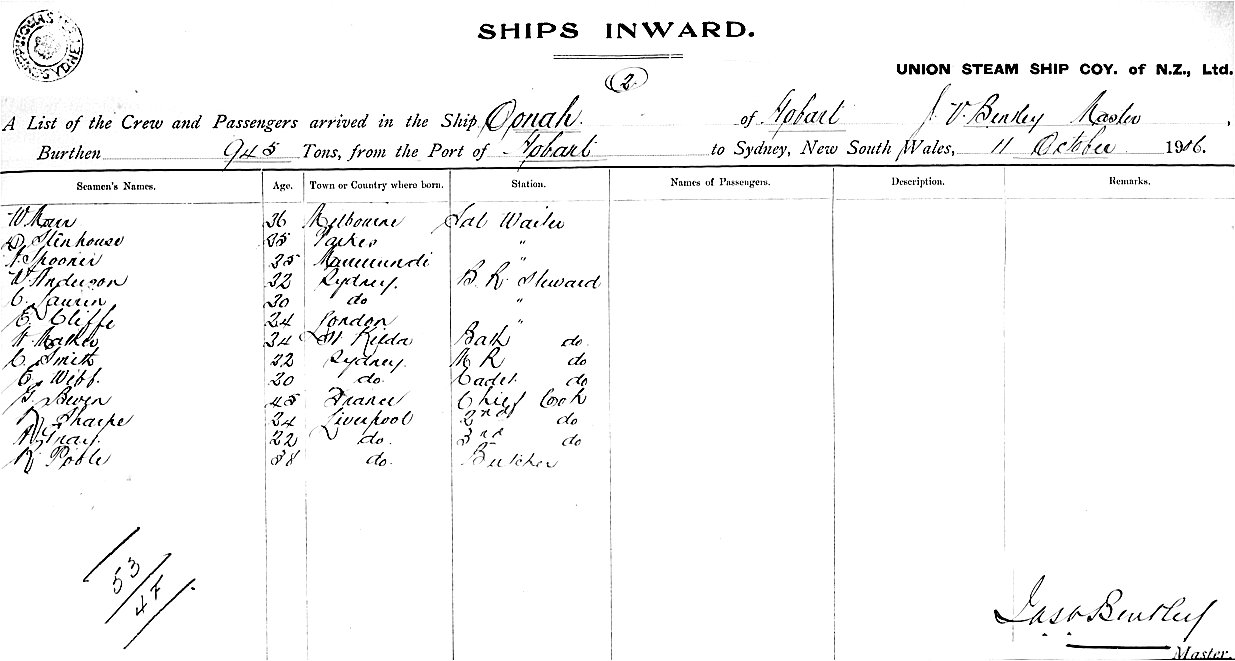 SHIPS INWARD.
2
UNION STEAM SHIP COY. of N.Z., Ltd.
A List of the Crew and Passengers arrived in the Ship Oonah of Hobart J. V. Bentley Master,
Burthen 945 Tons, from the Port of Hobart to Sydney, New South Wales, 11 October 1906.
Seamen's Names. Age. Town or Country where born. Station. Names of Passengers. Description. Remarks.
W Marr 36 Melbourne Sal Waiter
Stenhouse 35 Parkes "
Spooner 35 "
Anderson 32 Sydney. B. R. Steward
C. 30 do "
E. Cliffe 24 London "
34 St Kilda Bath do
C. Smith 22 Sydney. M R do
E. Webb. 20 do. Cadet do
G. Bevin 45 France Chief Cook
Sharpe 34 Liverpool 2nd do
Gray. 22 do. 3rd do
38 do. Butcher
53
47
Jas V Bentley
Master.